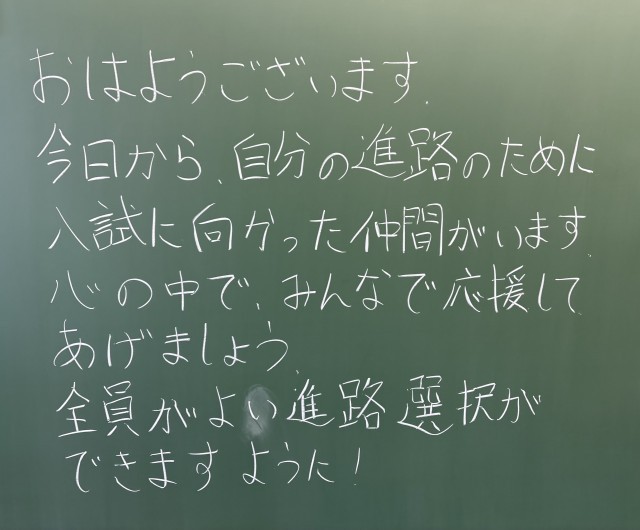 おはようございます.
今日から、自分の進路のために
入試に向かった仲間がいます.
心の中で、みんなで応援して
あげましょう.
全員がよい進路選択が
できますように!